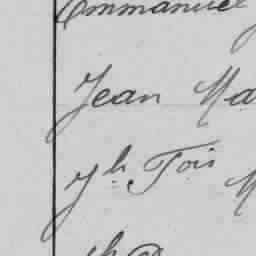 Emmanuel
Jean Ma
Jh. Fois M